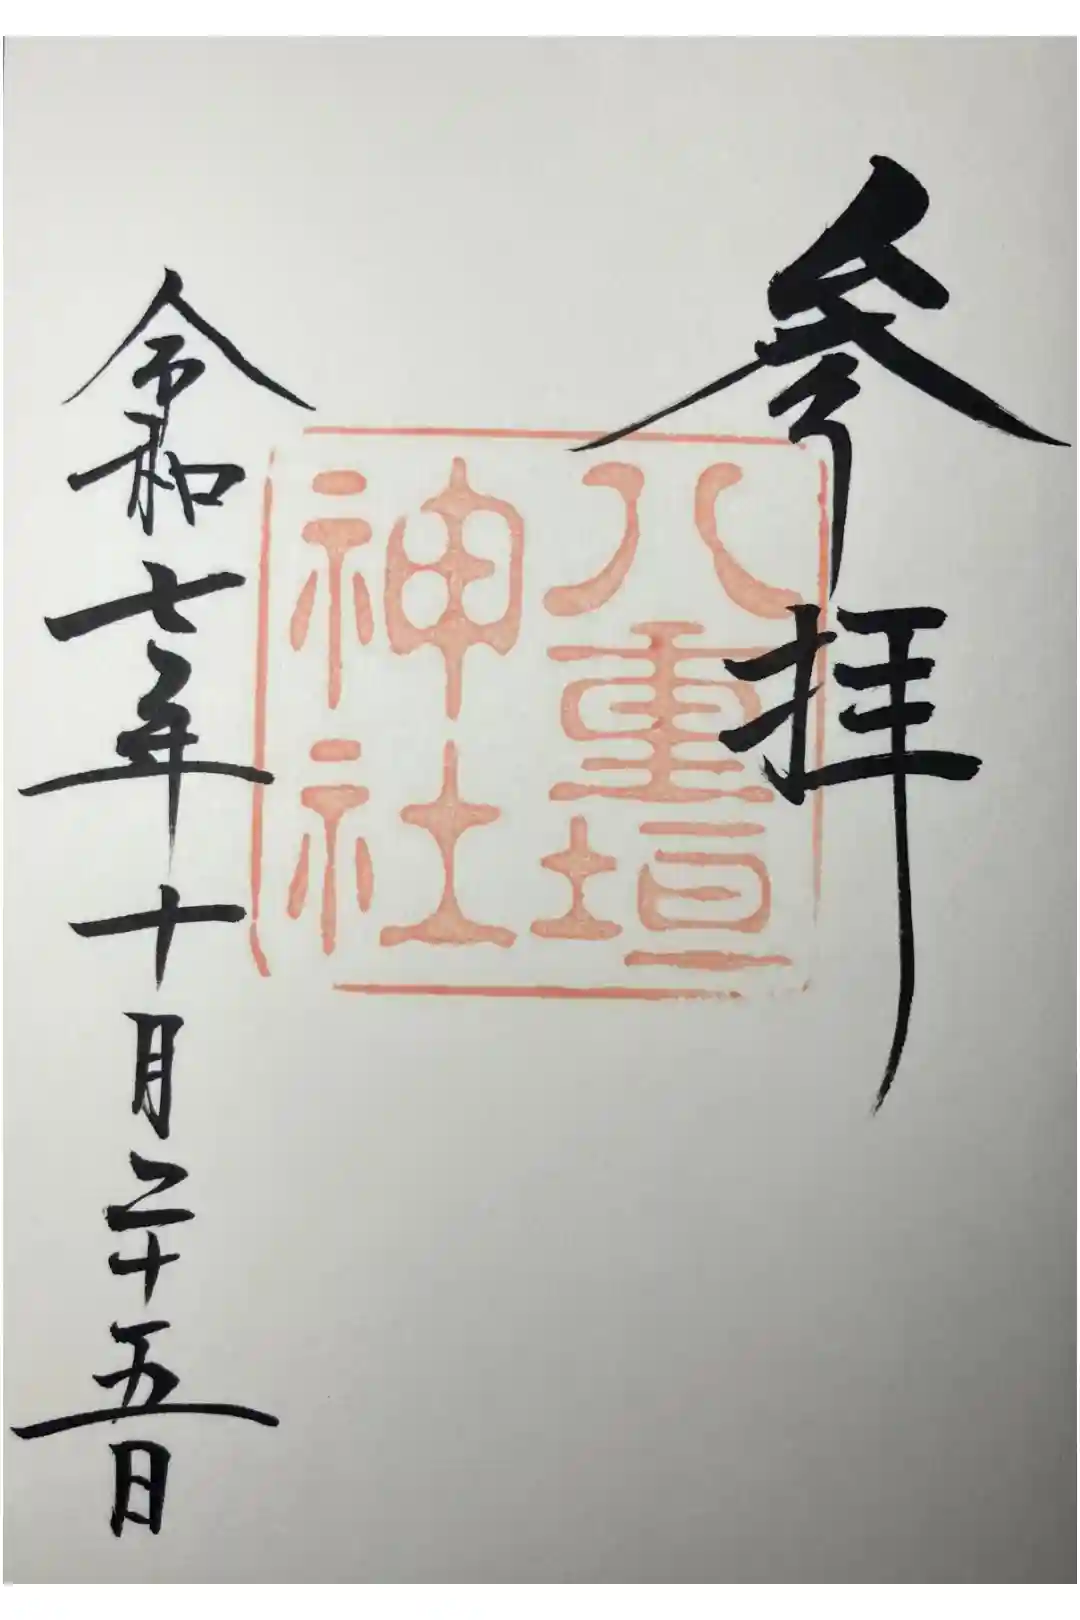 參拝
八重垣
神社
令和七年十月二十五日